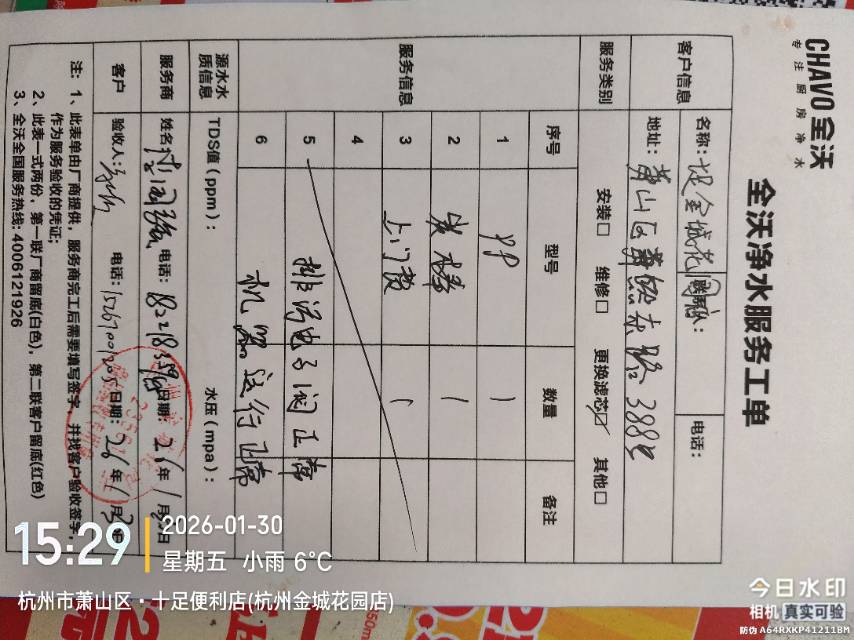 CHAVO 全沃
专注厨房净水
全沃净水服务工单
客户信息
名称：十足金城花园 联系人： 电话：
地址：萧山区萧然东路388号
服务类别
安装□ 维修□ 更换滤芯☑ 其他□
服务信息
序号 型号 数量 备注
1 PP 1
2 炭棒 1
3 上门费 1
4
5 排污电子阀正常
6 机器运行正常
源水水质信息
TDS值（ppm）： 水压（mpa）：
服务商 姓名 电话： 日期：26年1月30日
客户 验收人： 电话： 日期：26年1月30日
注：1、此表单由厂商提供，服务商完工后需要填写签字，并找客户验收签字，
作为服务验收的凭证；
2、此表一式两份，第一联厂商留底(白色)，第二联客户留底(红色)
3、全沃全国服务热线：4006121926
15:29
2026-01-30
星期五 小雨 6°C
杭州市萧山区·十足便利店(杭州金城花园店)
今日水印
相机 真实可验
防伪 A64RXKP41211BM